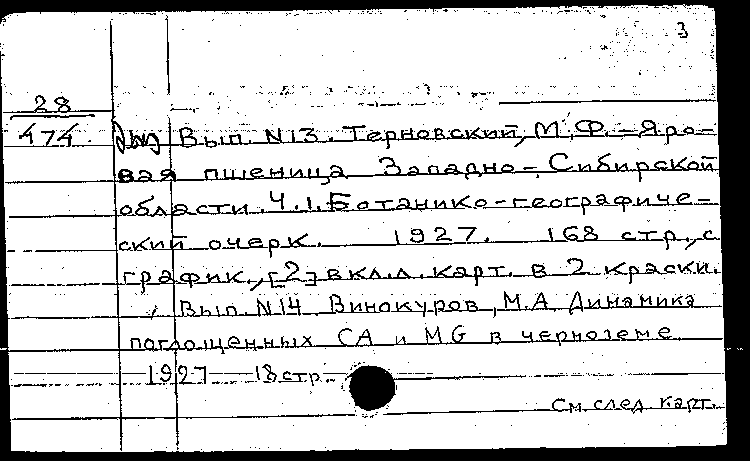 3
28
474
Вып. N13. Терновский, М.Ф. – Яро-
вая пшеница Западно-Сибирской
области. Ч.1. Ботанико-географиче-
ский очерк. 1927. 168 стр., с
график., [2] вкл.л. карт. в 2 краски.
Вып. N14 Винокуров, М.А Динамика
поглощенных CA и MG в черноземе
1927 18 стр.
См. след. карт.